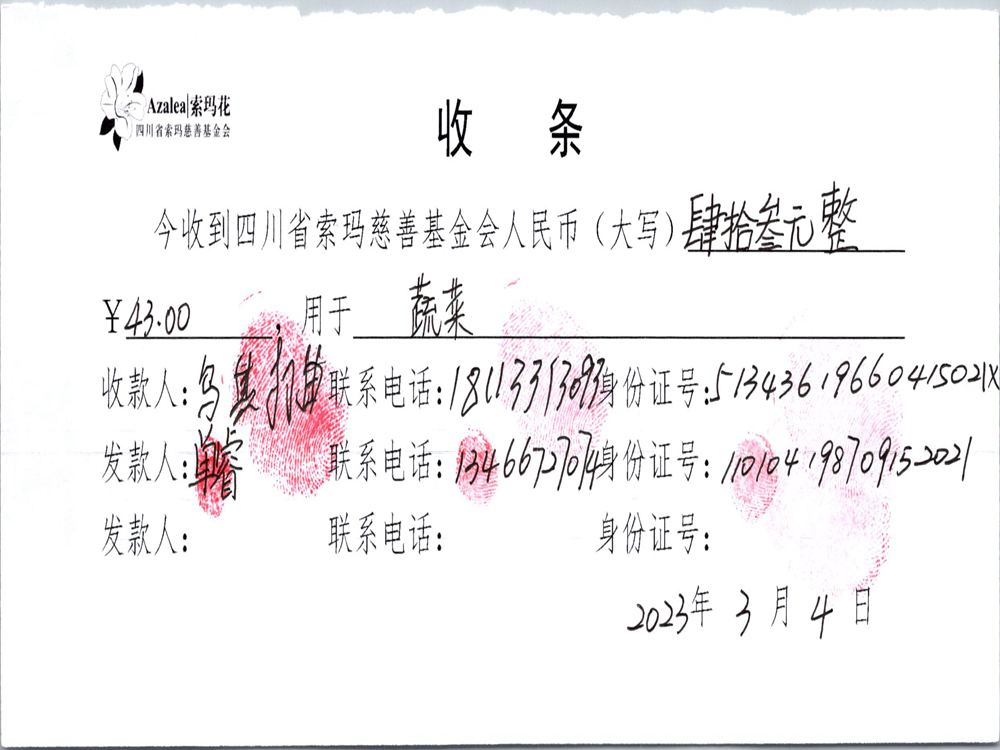 Azalea|索玛花
四川省索玛慈善基金会
收 条
今收到四川省索玛慈善基金会人民币（大写）肆拾叁元整
￥43.00，用于 蔬菜
收款人：乌其 联系电话：18113313093 身份证号：51343619660415021X
发款人：单睿 联系电话：13466727074 身份证号：110104198709152021
发款人： 联系电话： 身份证号：
2023年 3 月 4 日